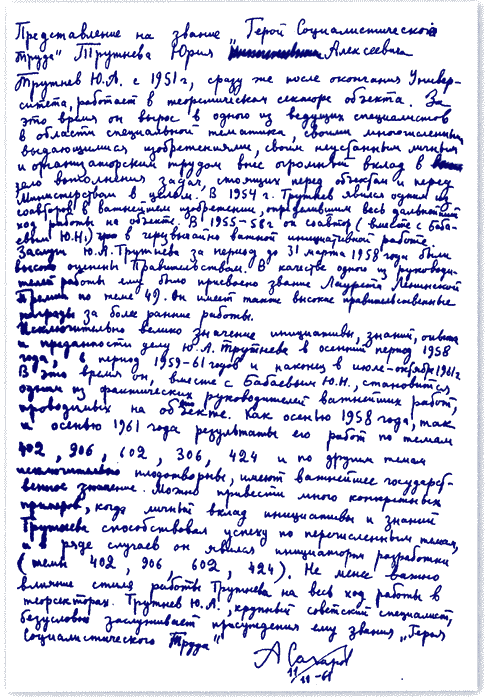 Представление на звание „Герой Социалистического
Труда" Трутнева Юрия Алексеевича
Трутнев Ю.А. с 1951 г, сразу же после окончания Универ-
ситета, работает в теоретическом секторе объекта. За
это время он вырос в одного из ведущих специалистов
в области специальной тематики. Своими многочисленными
выдающимися изобретениями, своим неустанным личным
и организаторским трудом внес огромный вклад в
дело выполнения задач, стоящих перед объектом и перед
Министерством в целом. В 1954 г. Трутнев явился одним из
соавторов в важнейшем изобретении, определившим весь дальнейший
ход работы на объекте. В 1955-58 г он соавтор (вместе с Баба-
евым Ю.Н.) в чрезвычайно важной инициативной работе.
Заслуги Ю.А. Трутнева за период до 31 марта 1958 года были
высоко оценены Правительством. В качестве одного из руководи-
телей работы ему было присвоено звание Лауреата Ленинской
Премии по теме 49. Он имеет также высокие правительственные
награды за более ранние работы.
Исключительно велико значение инициативы, знаний, опыта
и преданности делу Ю.А. Трутнева в осенний период 1958
года, в период 1959-61 годов и наконец в июле-октябре 1961 г.
В это время он, вместе с Бабаевым Ю.Н., становится
одним из фактических руководителей важнейших работ,
проводимых на объекте. Как осенью 1958 года, так
и осенью 1961 года результаты его работ по темам
402, 906, 602, 306, 424 и по другим темам
исключительно плодотворны, имеют важнейшее государст-
венное значение. Можно привести много конкретных
примеров, когда личный вклад инициативы и знаний
Трутнева способствовал успеху по перечисленным темам,
и в ряде случаев он явился инициатором разработки
(темы 402, 906, 602, 424). Не менее важно
влияние стиля работы Трутнева на весь ход работы в
теорсекторах. Трутнев Ю.А., крупный советский специалист,
безусловно заслуживает присуждения ему звания „Героя
Социалистического Труда"
А Сахаров
11/11-61